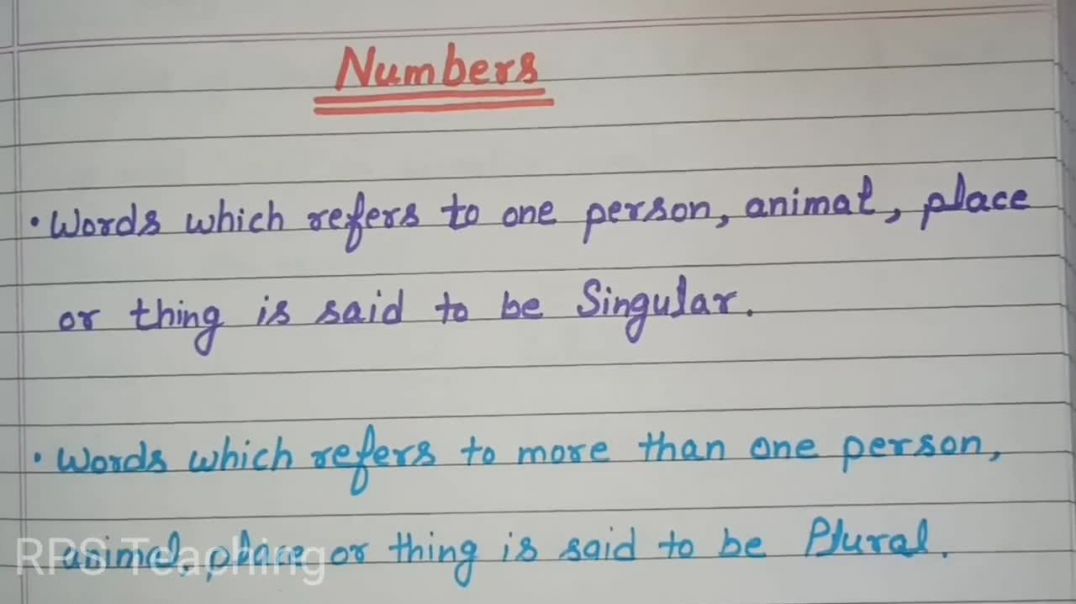 Numbers
• Words which refers to one person, animal, place
or thing is said to be Singular.
• Words which refers to more than one person,
animal, place or thing is said to be Plural.
RPS Teaching